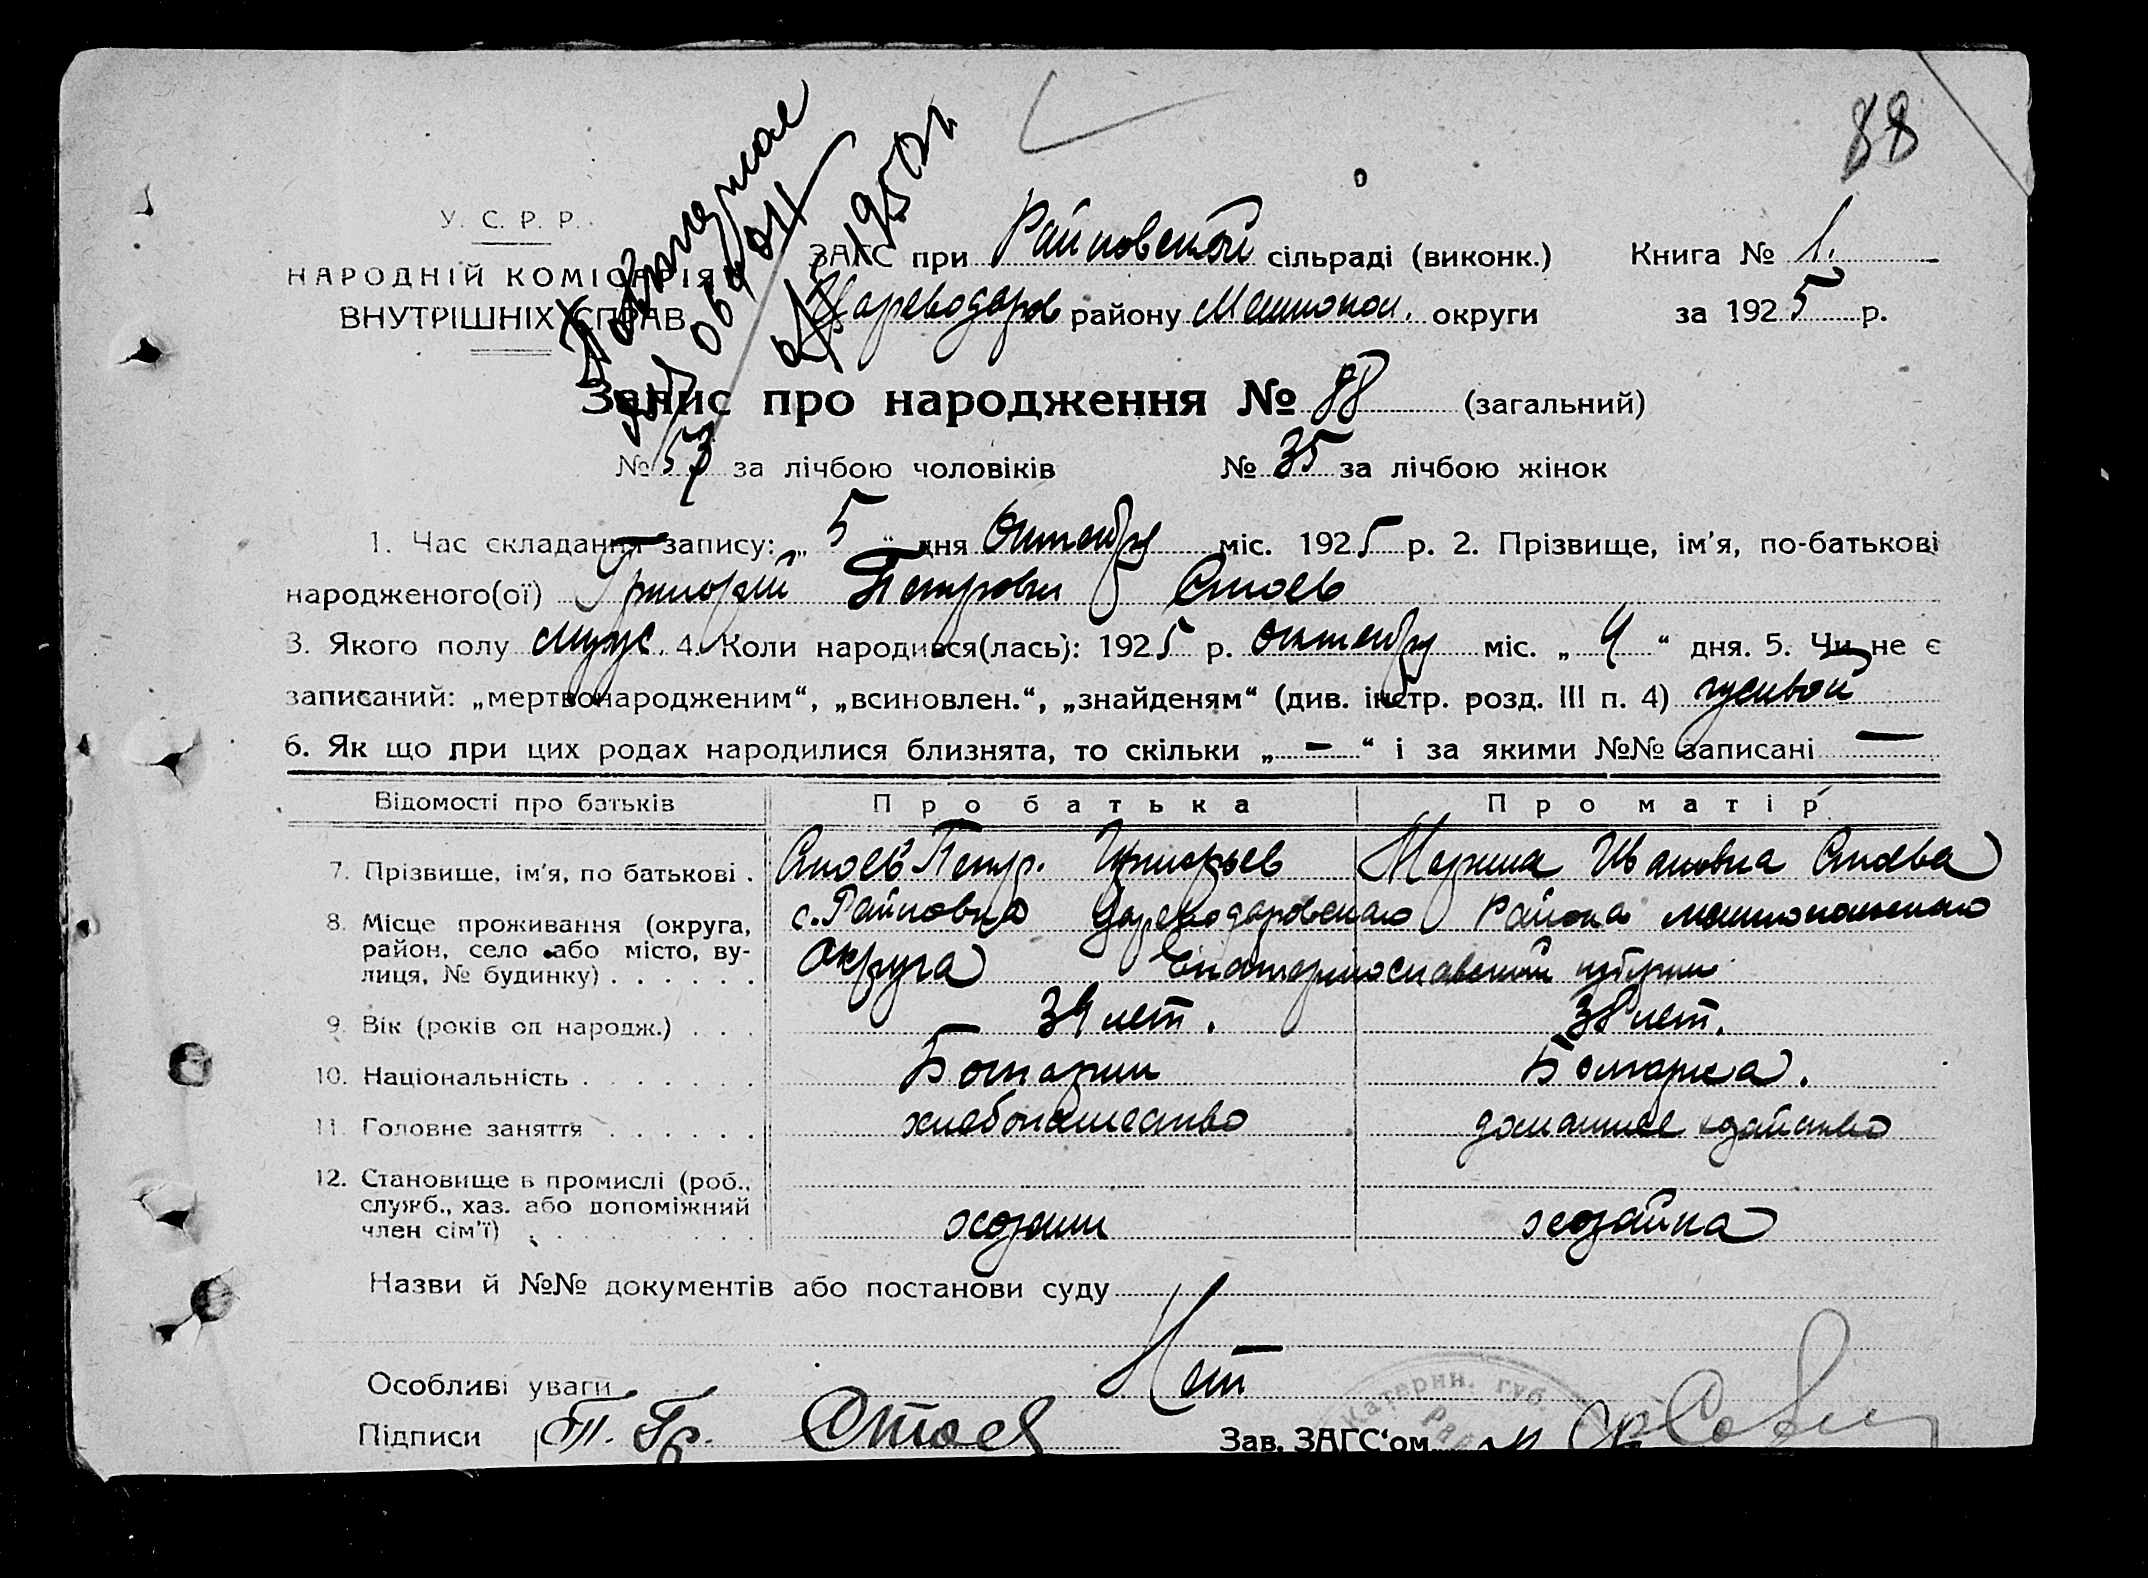 88
Повторное
1950 г.
У. С. Р. Р.
НАРОДНІЙ КОМІСАРІЯТ
ВНУТРІШНІХ СПРАВ
ЗАГС при Райновской сільраді (виконк.) Книга № 1.
Цареводаров району Мелитопол. округи за 1925 р.
Запис про народження № 88 (загальний)
№ 53 за лічбою чоловіків № 35 за лічбою жінок
1. Час складання запису: „ 5 “ дня Октября міс. 1925 р. 2. Прізвище, ім’я, по-батькові
народженого(ої) Григорій Петрович Стоев
3. Якого полу мужс. 4. Коли народився(лась): 1925 р. октября міс. „ 4 “ дня. 5. Чи не є
записаний: „мертвонародженим“, „всиновлен.“, „знайденям“ (див. інстр. розд. III п. 4) живой
6. Як що при цих родах народилися близнята, то скільки „ — “ і за якими №№ записані —
Відомості про батьків Про батька Про матір
7. Прізвище, ім’я, по батькові . Стоев Петр. Григорьев Марина Ивановна Стоева
8. Місце проживання (округа, с. Райновка Цареводаровскаго Района мелитопольскаго
район, село або місто, ву-
лиця, № будинку) . . . . . . Округа Екатеринославской губернии
9. Вік (років од народж.) . . . 39 лет. 38 лет.
10. Національність . . . . . . . Болгарин Болгарка.
11. Головне заняття . . . . . . хлебопашество домашнее хозяйство
12. Становище в промислі (роб.,
служб., хаз. або допоміжний
член сім’ї) . . . . . . . . . хозяин хозяйка
Назви й №№ документів або постанови суду
Нет
Особливі уваги
Катерин. губ
Підписи П. Гр. Стоев Зав. ЗАГС‘ом